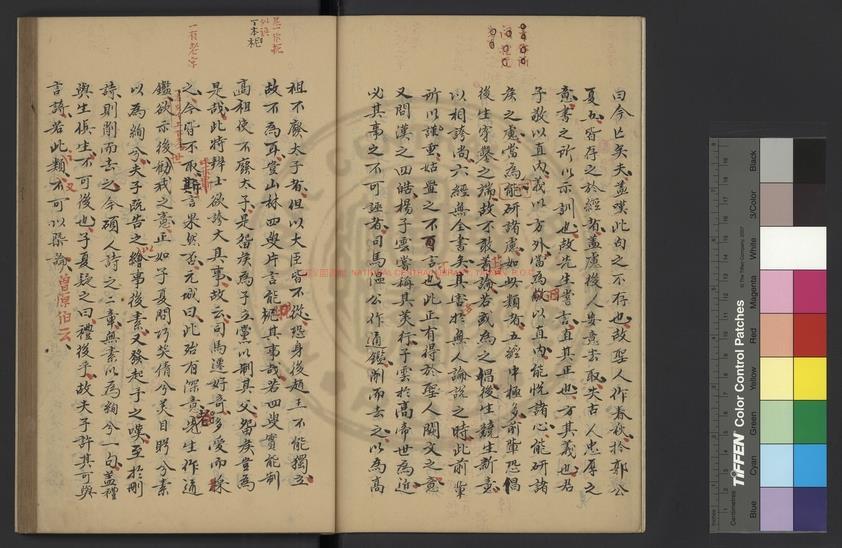 曰今亡矣夫蓋嘆此句之不存也故聖人作春秋於郭公
夏五皆存之於經者蓋慮後人妄意去取失古人忠厚之
意書之所以示訓也故先生嘗言直其正也方其義也君
子敬以直內義以方外當為敬以直內能悅諸心能研諸
侯之慮當為能研諸慮如此類者五經中極多前輩恐倡
後生穿鑿之端故不敢著論若或為之倡後生競生新意
以相誇尚六經無全書矣其害於無人論說之時此前輩
所以謹重姑置之不言也此正有得於聖人闕文之意
又問漢之四皓揚子雲嘗稱其美行子雲於高帝世為近
必其事之不可誣者司馬溫公作通鑑削而去之以為高
祖不廢太子者但以大臣皆不從恐身後趙王不能獨立
故不為耳豈山林四叟片言能柅其事哉若四叟實能制
高祖使不廢太子是留侯為子立黨以制其父留侯豈為
是哉此特辨士欲夸大其事故云司馬遷好奇多愛而採
之今皆不取其言果然否元城曰此殆有深意老先生作通
鑑欲示後勸戒之意正如子夏問巧笑倩兮美目盼兮素
以為絢兮夫子既告之以繪事後素又發起予之嘆至於刪
詩則削而去之今碩人詩之二章無素以為絢兮一句蓋禮
與生俱生不可後也子夏疑之曰禮後乎故夫子許其可與
言詩若此類又不可以槩論
曾原伯云
一有老字
丁本柅
Black
3/Color
White
Magenta
Red
Yellow
Green
Cyan
Blue
TIFFEN Color Control Patches
© The Tiffen Company, 2007
Centimetres
Inches